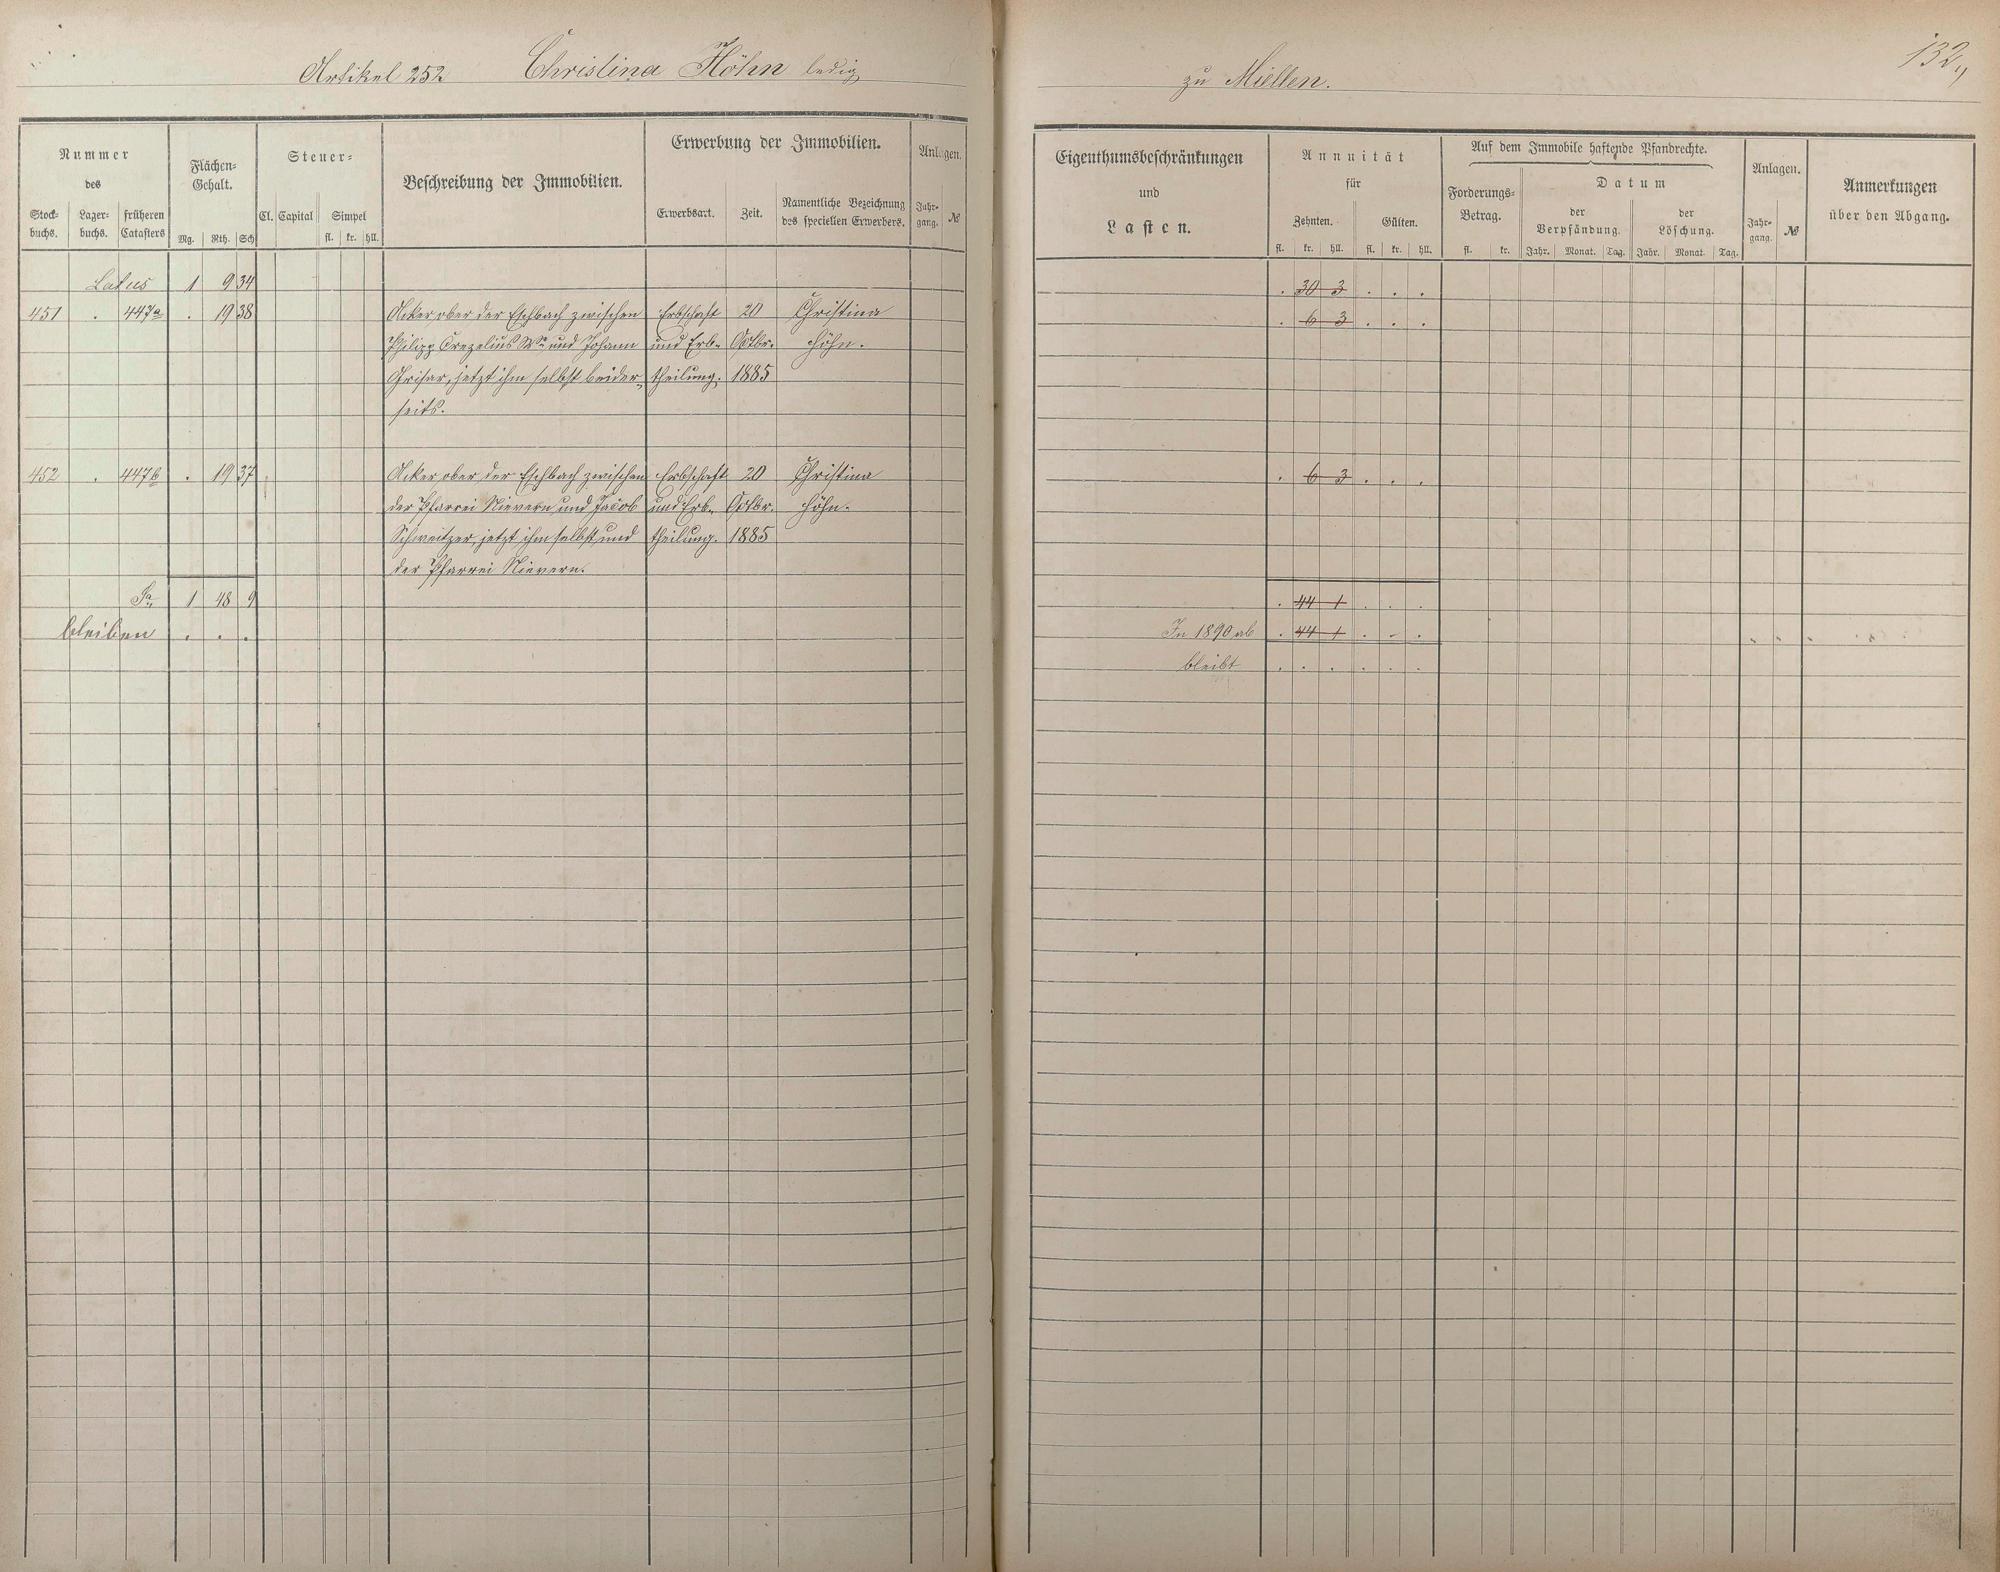 Artikel 252 Christina Höhn ledig
zu Miellen.
132
Nummer
des
Stock-
buchs.
Lager-
buchs.
früheren
Catasters
Flächen-
Gehalt.
Mg. Rth. Sch
Steuer-
Cl. Capital Simpel
fl. kr. hll.
Beschreibung der Immobilien.
Erwerbung der Immobilien.
Erwerbsart. Zeit.
Namentliche Bezeichnung
des speciellen Erwerbers.
Anlagen.
Jahr-
gang.
№
Eigenthumsbeschränkungen
und
Lasten.
Annuität
für
Zehnten. Gülten.
fl. kr. hll. fl. kr. hll.
Auf dem Immobile haftende Pfandrechte.
Forderungs-
Betrag.
fl. kr.
Datum
der
Verpfändung.
Jahr. Monat. Tag.
der
Löschung.
Jahr. Monat. Tag.
Anlagen.
Jahr-
gang.
№
Anmerkungen
über den Abgang.
Latus 1 9 34 . 30 3 . . .
451 . 447a . 19 38 Acker ober der Eschbach zwischen Erbschaft 20 Christina . 6 3 . . .
Philipp Crezelius Wwe und Johann und Erb- Octbr. Höhn.
Grisar, jetzt ihm selbst beider- theilung. 1885
seits.
452 . 447b . 19 37 Acker ober der Eschbach zwischen Erbschaft 20 Christina . 6 3 . . .
der Pfarrei Nievern und Jacob und Erb- Octbr. Höhn.
Schweitzer, jetzt ihm selbst und theilung. 1885
der Pfarrei Nievern.
Sa 1 48 9 . 44 1 . . .
bleiben . . . In 1890 ab . 44 1 . . .
bleibt . . . . . .